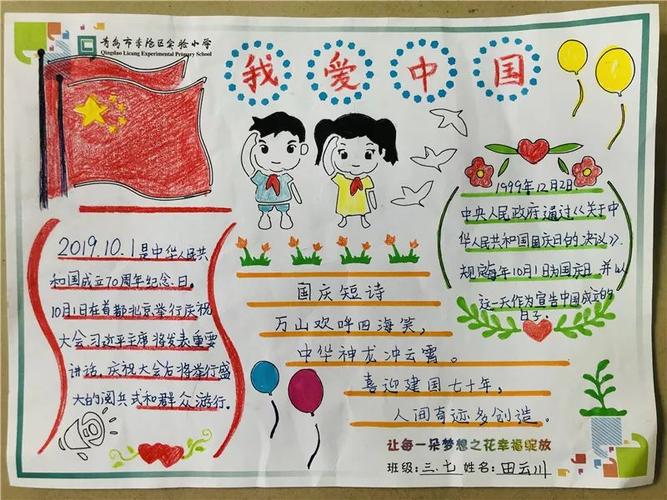 青岛市李沧区实验小学
Qingdao Licang Experimental Primary School
我爱中国
2019.10.1是中华人民共
和国成立70周年纪念日。
10月1日在首都北京举行庆祝
大会习近平主席将发表重要
讲话。庆祝大会后将举行盛
大的阅兵式和群众游行。
国庆短诗
万山欢呼四海笑,
中华神龙冲云霄。
喜迎建国七十年,
人间奇迹多创造。
1999年12月2日
中央人民政府通过《关于中
华人民共和国国庆日的决议》.
规定每年10月1日为国庆日,并以
这一天作为宣告中国成立的
日子。
让每一朵梦想之花幸福绽放
班级:三.七 姓名:田云川